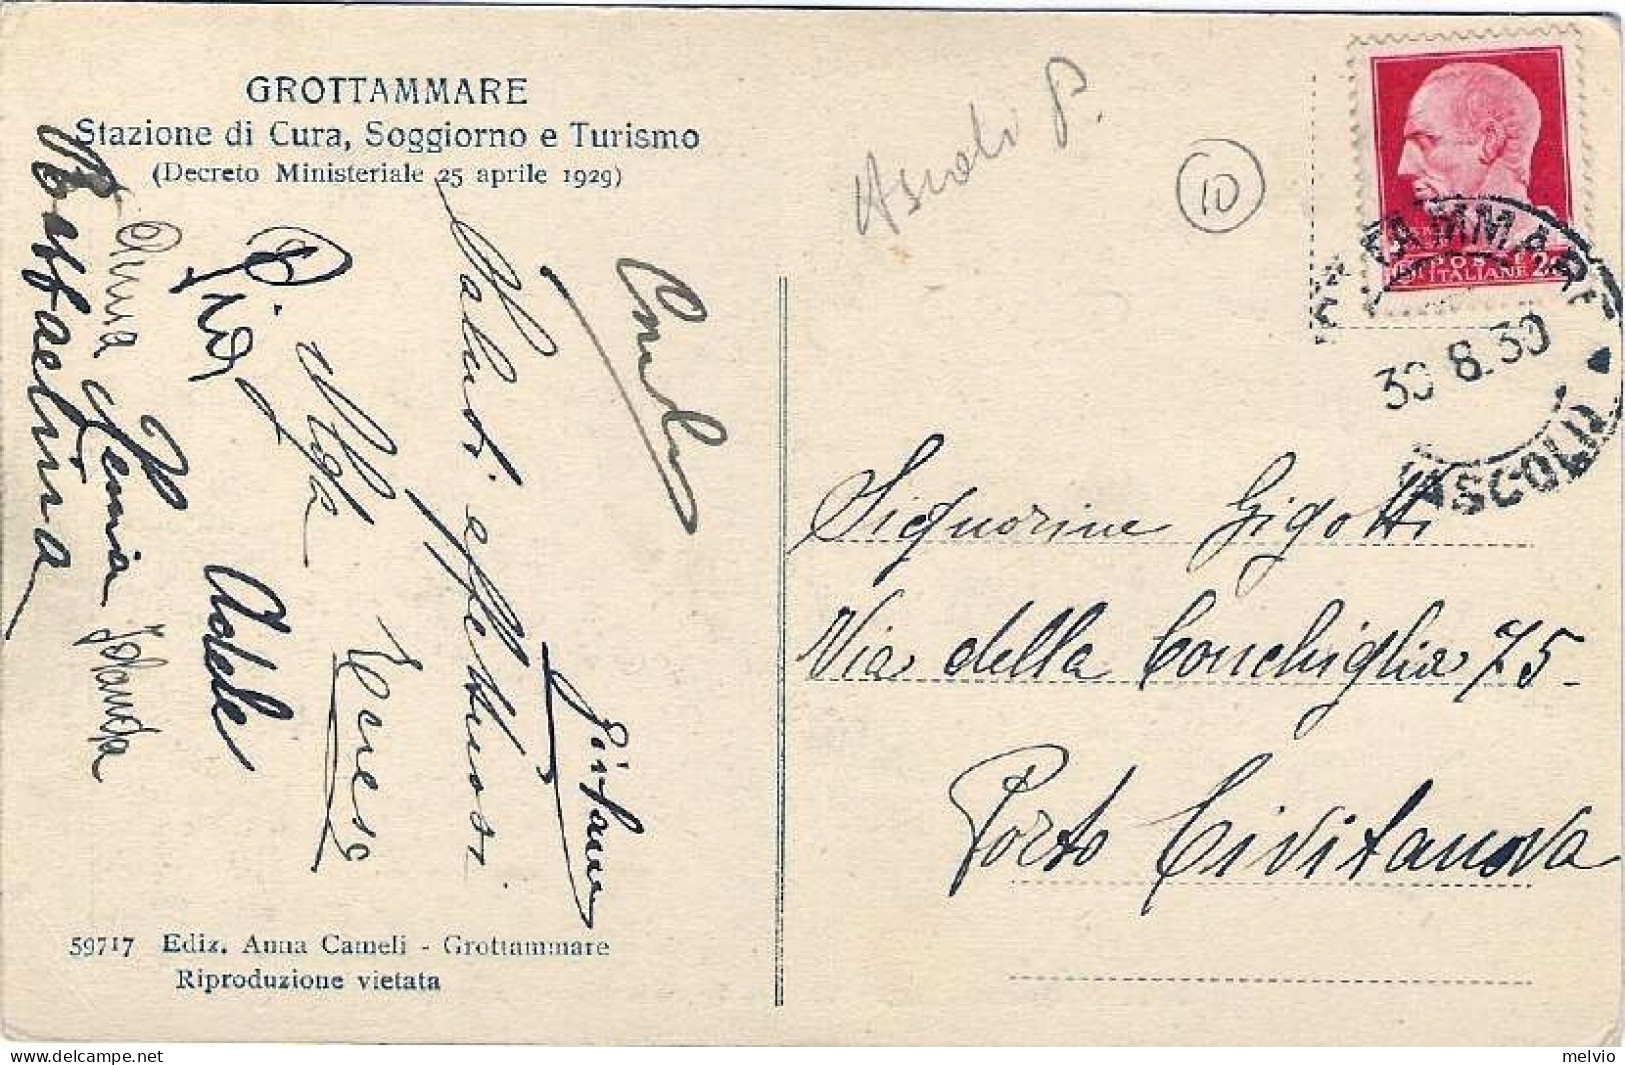 GROTTAMMARE
Stazione di Cura, Soggiorno e Turismo
(Decreto Ministeriale 25 aprile 1929)
Saluti affettuosi
Giovanna
Adele
Anna Jenia Jolanda
Raffaelina
59717 Ediz. Anna Cameli - Grottammare
Riproduzione vietata
Ascoli P.
10
POSTE
ITALIANE
30.8.30
ASCOLI
Signorine Gigotti
Via della Conchiglia 75-
Porto Civitanova
melvio